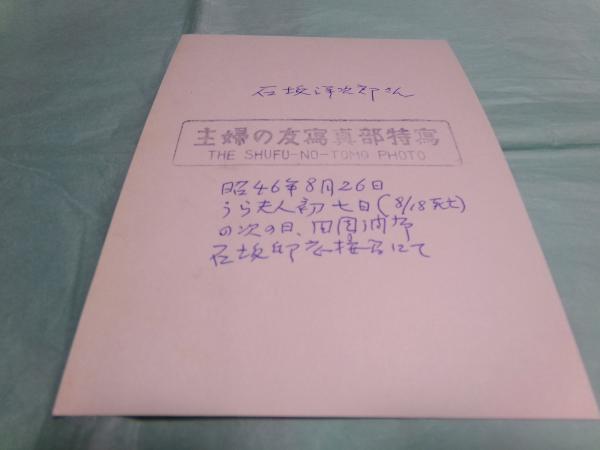 石坂洋次郎さん
主婦の友寫真部特寫
THE SHUFU-NO-TOMO PHOTO
昭46年8月26日
うら夫人初七日(8/18死去)
の次の日、田園調布
石坂邸応接間にて